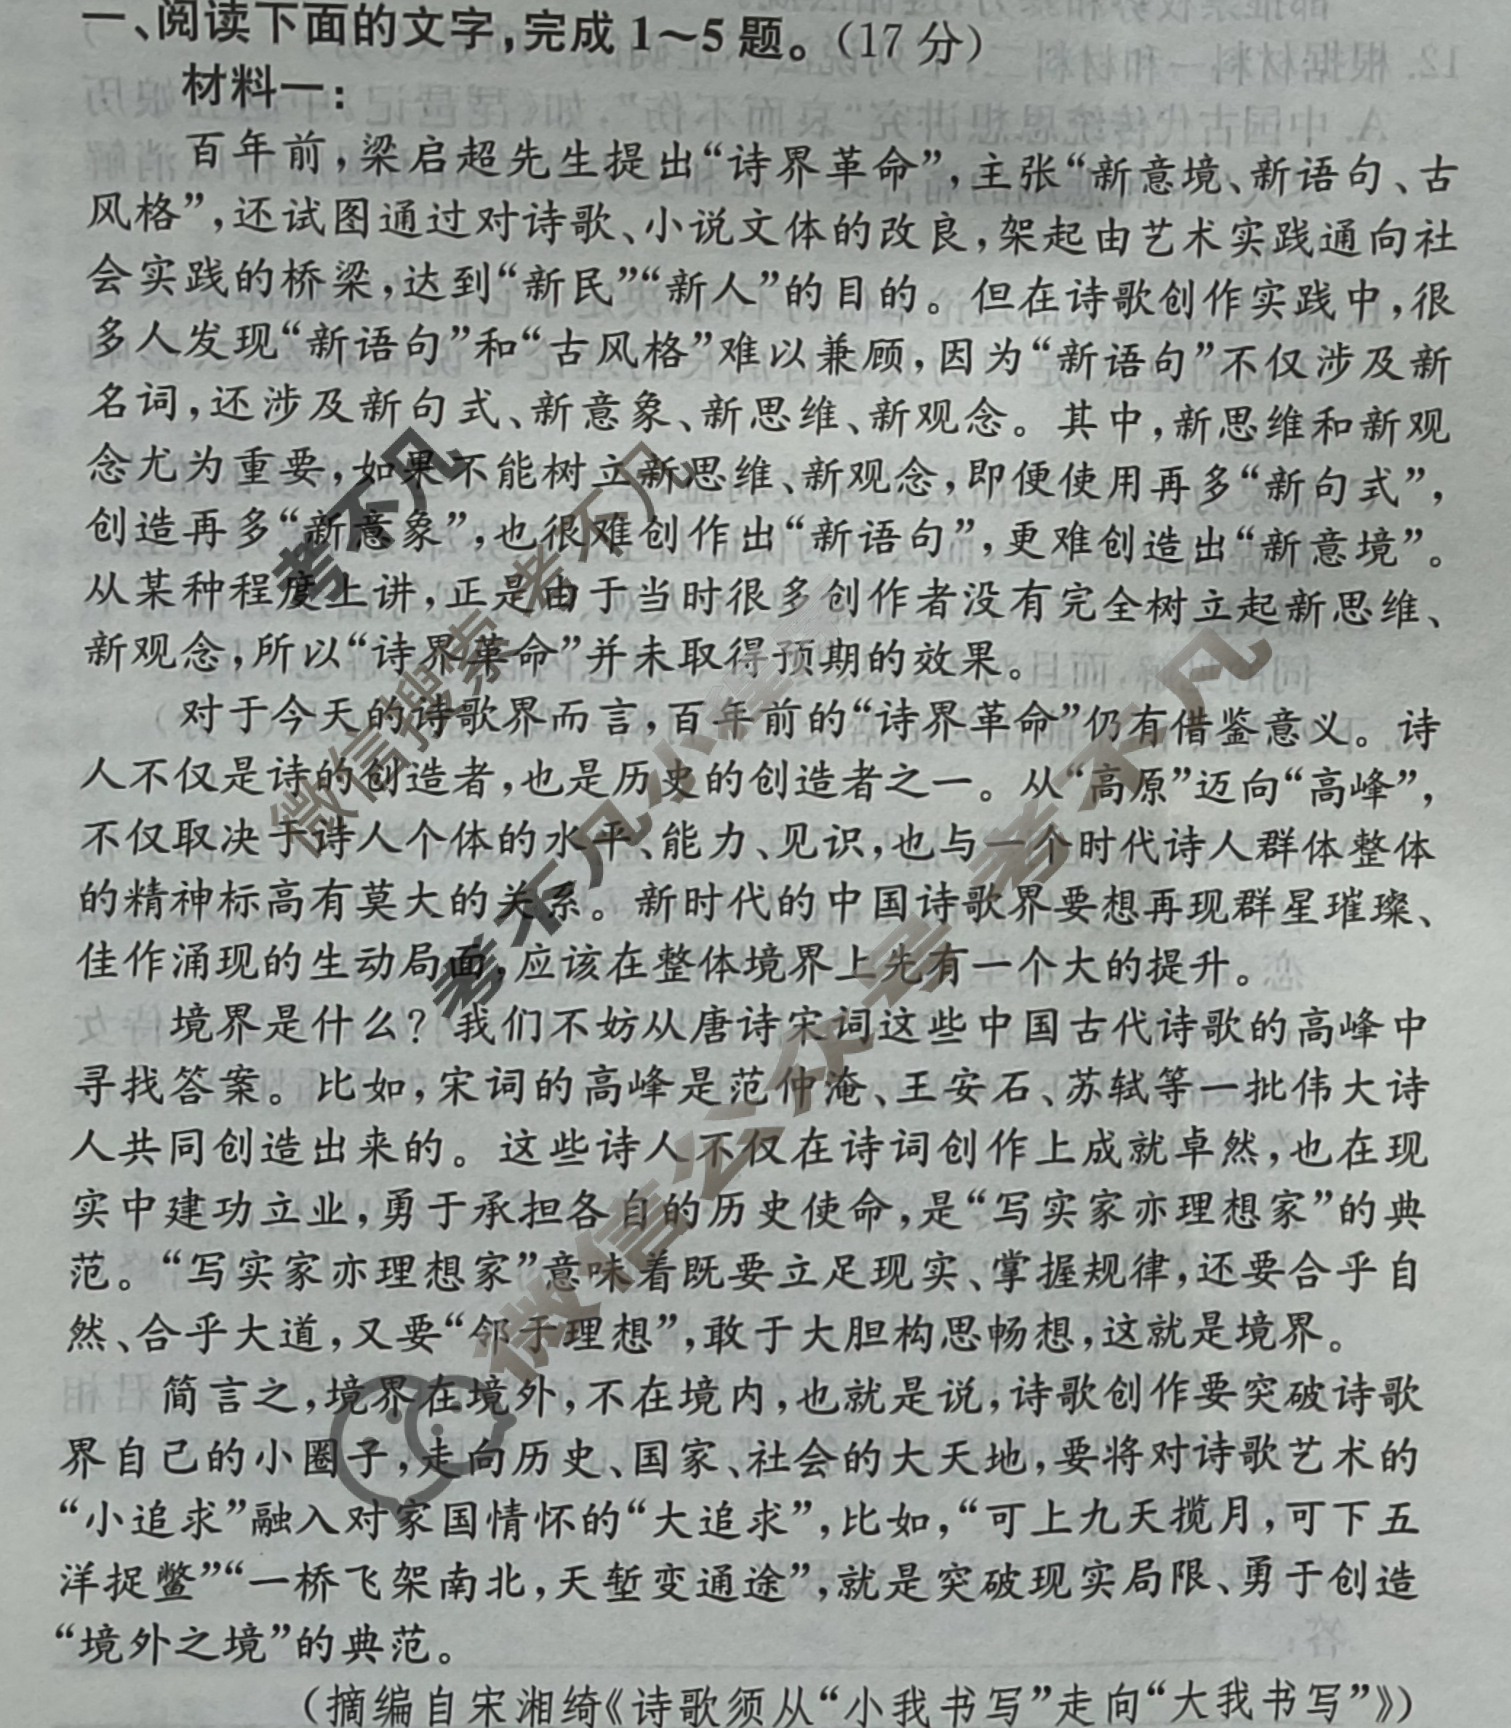 一、阅读下面的文字,完成1～5题。(17分)
材料一:
百年前,梁启超先生提出“诗界革命”,主张“新意境、新语句、古
风格”,还试图通过对诗歌、小说文体的改良,架起由艺术实践通向社
会实践的桥梁,达到“新民”“新人”的目的。但在诗歌创作实践中,很
多人发现“新语句”和“古风格”难以兼顾,因为“新语句”不仅涉及新
名词,还涉及新句式、新意象、新思维、新观念。其中,新思维和新观
念尤为重要,如果不能树立新思维、新观念,即便使用再多“新句式”,
创造再多“新意象”,也很难创作出“新语句”,更难创造出“新意境”。
从某种程度上讲,正是由于当时很多创作者没有完全树立起新思维、
新观念,所以“诗界革命”并未取得预期的效果。
对于今天的诗歌界而言,百年前的“诗界革命”仍有借鉴意义。诗
人不仅是诗的创造者,也是历史的创造者之一。从“高原”迈向“高峰”,
不仅取决于诗人个体的水平、能力、见识,也与一个时代诗人群体整体
的精神标高有莫大的关系。新时代的中国诗歌界要想再现群星璀璨、
佳作涌现的生动局面,应该在整体境界上先有一个大的提升。
境界是什么?我们不妨从唐诗宋词这些中国古代诗歌的高峰中
寻找答案。比如,宋词的高峰是范仲淹、王安石、苏轼等一批伟大诗
人共同创造出来的。这些诗人不仅在诗词创作上成就卓然,也在现
实中建功立业,勇于承担各自的历史使命,是“写实家亦理想家”的典
范。“写实家亦理想家”意味着既要立足现实、掌握规律,还要合乎自
然、合乎大道,又要“邻于理想”,敢于大胆构思畅想,这就是境界。
简言之,境界在境外,不在境内,也就是说,诗歌创作要突破诗歌
界自己的小圈子,走向历史、国家、社会的大天地,要将对诗歌艺术的
“小追求”融入对家国情怀的“大追求”,比如,“可上九天揽月,可下五
洋捉鳖”“一桥飞架南北,天堑变通途”,就是突破现实局限、勇于创造
“境外之境”的典范。
(摘编自宋湘绮《诗歌须从“小我书写”走向“大我书写”》)
考不凡
微信搜索 考不凡
考不凡小程序
微信公众号 考不凡